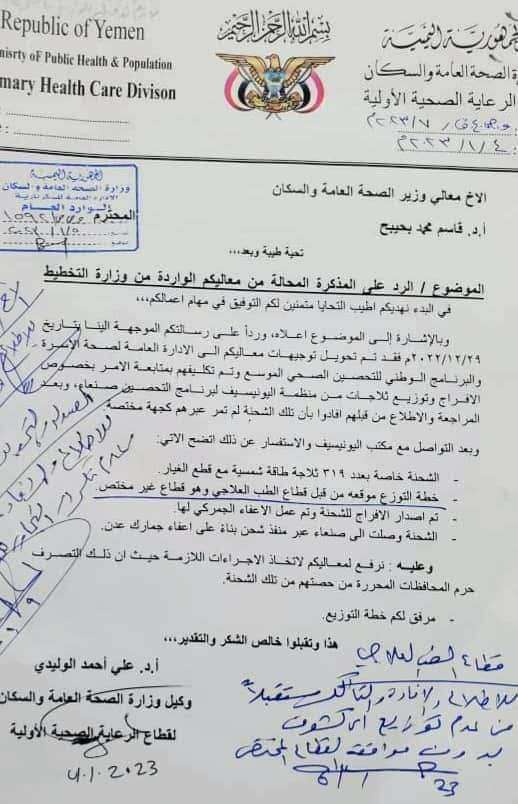 Republic of Yemen
Ministry oF Public Health & Population
Primary Health Care Divison
بسم الله الرحمن الرحيم
الجمهورية اليمنية
وزارة الصحة العامة والسكان
الرعاية الصحية الأولية
الجمهورية اليمنية
وزارة الصحة العامة والسكان
الوارد العام
الاخ معالي وزير الصحة العامة والسكان
أ.د. قاسم محمد بحيبح
المحترم
تحية طيبة وبعد،،،
الموضوع / الرد على المذكرة المحالة من معاليكم الواردة من وزارة التخطيط
في البدء نهديكم اطيب التحايا متمنين لكم التوفيق في مهام اعمالكم،،،
وبالإشارة إلى الموضوع اعلاه، ورداً على رسالتكم الموجهة الينا بتاريخ
٢٠٢٢/١٢/٢٩م فقد تم تحويل توجيهات معاليكم الى الادارة العامة لصحة الاسرة
والبرنامج الوطني للتحصين الصحي الموسع وتم تكليفهم بمتابعة الامر بخصوص
الافراج وتوزيع ثلاجات من منظمة اليونيسيف لبرنامج التحصين صنعاء، وبعد
المراجعة والاطلاع من قبلهم افادوا بأن تلك الشحنة لم تمر عبرهم كجهة مختصة.
وبعد التواصل مع مكتب اليونيسيف والاستفسار عن ذلك اتضح الاتي:
- الشحنة خاصة بعدد ٣١٩ ثلاجة طاقة شمسية مع قطع الغيار.
- خطة التوزع موقعه من قبل قطاع الطب العلاجي وهو قطاع غير مختص.
- تم اصدار الافراج للشحنة وتم عمل الاعفاء الجمركي لها.
- الشحنة وصلت الى صنعاء عبر منفذ شحن بناة على اعفاء جمارك عدن.
وعليه : نرفع لمعاليكم لاتخاذ الاجراءات اللازمة حيث ان ذلك التصرف
حرم المحافظات المحررة من حصتهم من تلك الشحنة.
- مرفق لكم خطة التوزيع.
هذا وتقبلوا خالص الشكر والتقدير،،،
أ.د. علي أحمد الوليدي
وكيل وزارة الصحة العامة والسكان
لقطاع الرعاية الصحية الأولية
4.1.2023
قطاع الطب العلاجي
للاطلاع والافادة والتأكد مستقبلاً
من عدم توزيع اي كشوف
بدون موافقة لقطاع المختص